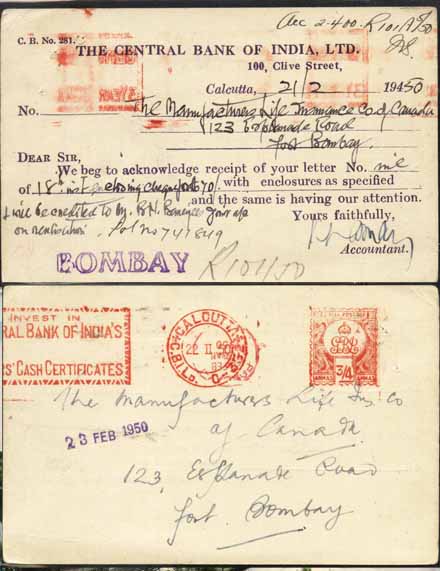 Acc 2-400. R101/A8/50
C. B. No. 281.
THE CENTRAL BANK OF INDIA, LTD.
100, Clive Street,
Calcutta, 21/2 1950
No. The Manufacturers Life Insurance Co of Canada
123 Esplanade Road
Fort Bombay.
DEAR SIR,
We beg to acknowledge receipt of your letter No. nil
of 18th inst enclosing cheque for 670/ with enclosures as specified
& will be credited to Mr. B. N. Banerjee's a/c, and the same is having our attention.
on realisation Pol no 747849 Yours faithfully,
Accountant.
BOMBAY R101/50
INVEST IN
RAL BANK OF INDIA'S
RS' CASH CERTIFICATES
CALCUTTA
22 II
3/4
The Manufacturers Life Ins. Co
of Canada
23 FEB 1950
123, Esplanade Road
Fort Bombay